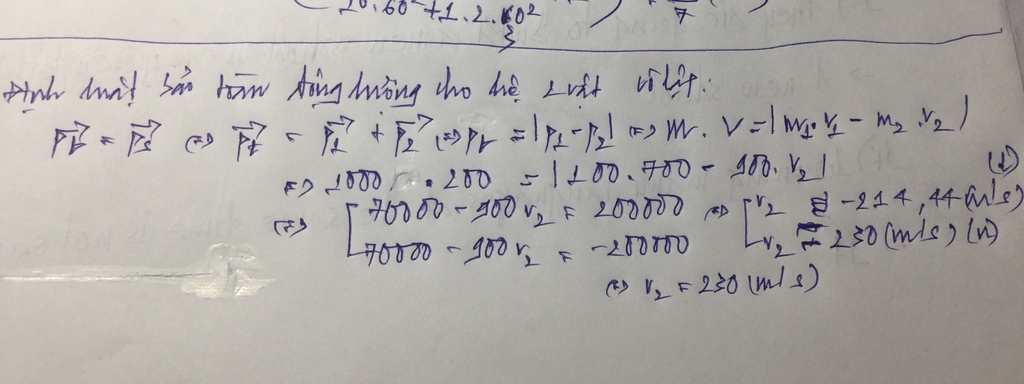 10.60² + 1.2.60²
7
Định luật bảo toàn động lượng cho hệ 2 vật cô lập:
p⃗t = p⃗s ⇔ p⃗t = p⃗1 + p⃗2 ⇔ pt = |p1 - p2| ⇔ m. V = |m1.v1 - m2.v2|
⇔ 1000 . 200 = |100.700 - 900. v2| (1)
⇔ [ 70000 - 900 v2 = 200000 ⇔ [ v2 = -214,44 (m/s)
70000 - 900 v2 = -200000 v2 = 230 (m/s) (n)
⇔ v2 = 230 (m/s)